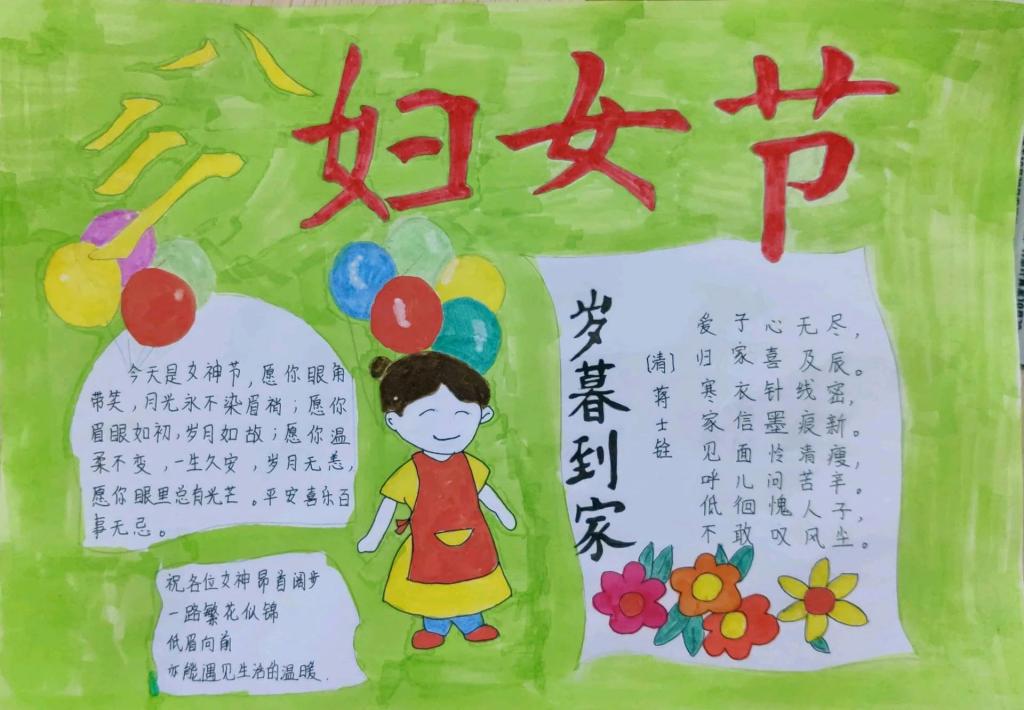 三八妇女节
今天是女神节，愿你眼角
带笑，月光永不染眉梢；愿你
眉眼如初，岁月如故；愿你温
柔不变，一生久安，岁月无恙，
愿你眼里总有光芒。平安喜乐百
事无忌。
祝各位女神昂首阔步
一路繁花似锦
低眉向前
亦能遇见生活的温暖.
岁暮到家
〔清〕蒋士铨
爱子心无尽，
归家喜及辰。
寒衣针线密，
家信墨痕新。
见面怜清瘦，
呼儿问苦辛。
低徊愧人子，
不敢叹风尘。